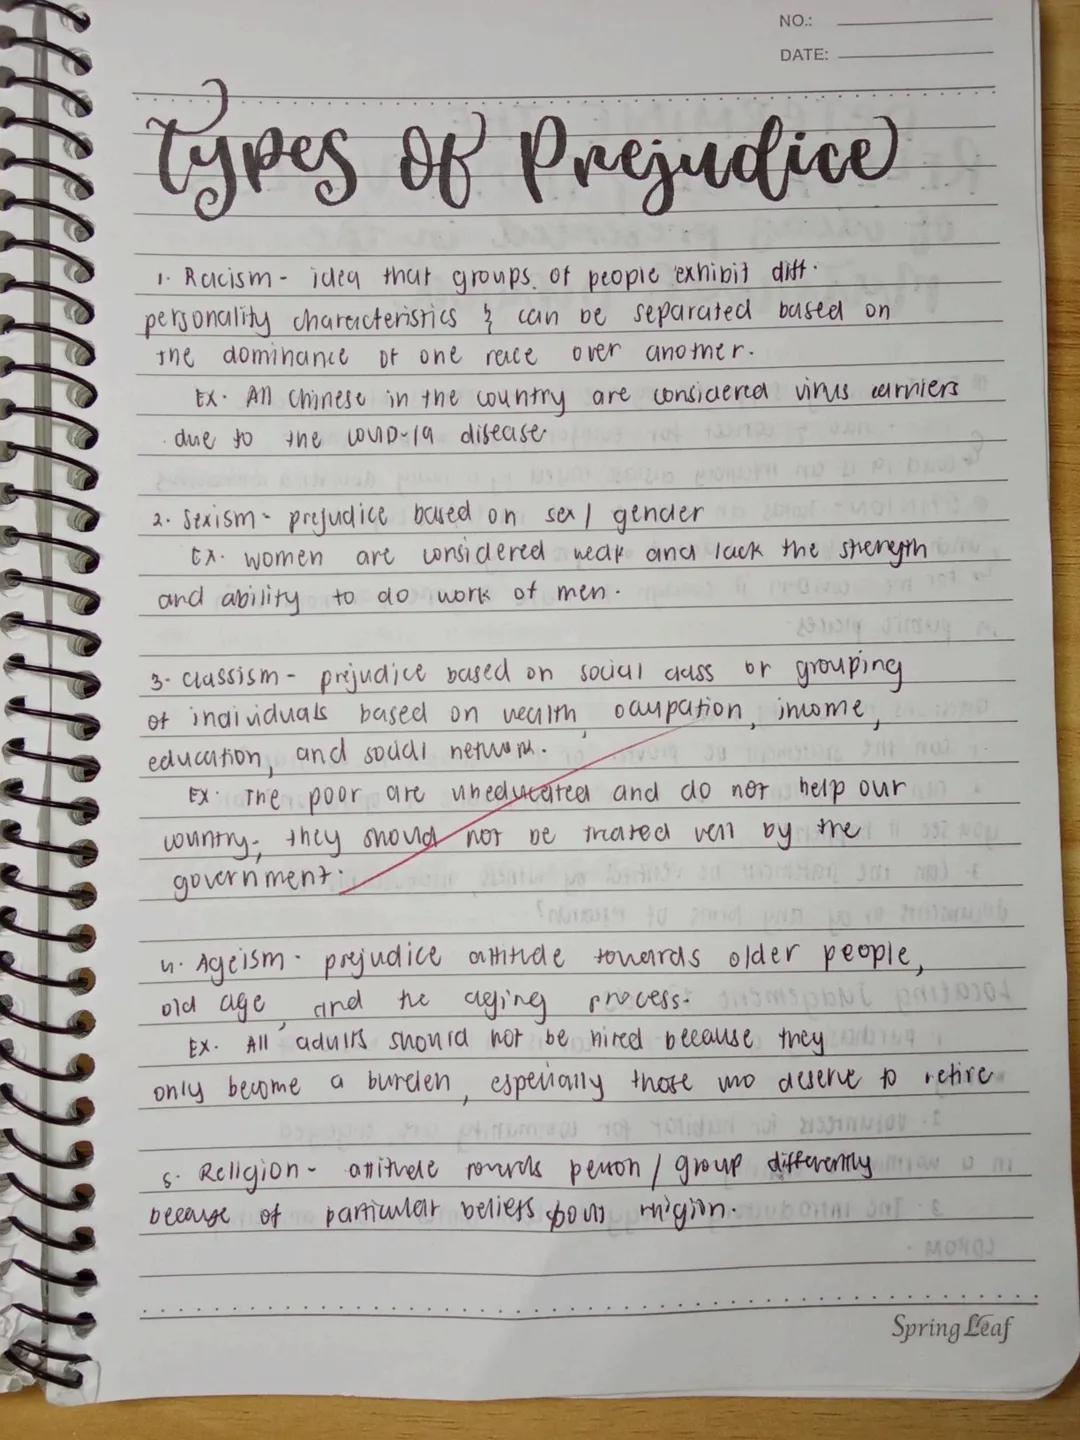 NO.:
DATE:
Types of Prejudice
1. Racism - idea that groups of people exhibit diff.
personality characteristics & can be separated based on
the dominance of one race over another.
Ex. All Chinese in the country are considered virus carriers
due to the COVID-19 disease.
2. Sexism - prejudice based on sex / gender
Ex. women are considered weak and lack the sterength
and ability to do work of men.
3. Classism - prejudice based on social class or grouping
of individuals based on wealth, occupation, income,
education, and social network.
Ex. The poor are uneducated and do not help our
country, they should not be treated well by the
government.
4. Ageism - prejudice attitude towards older people,
old age, and the aging process.
Ex. All adults should not be hired because they
only become a burden, especially those who deserve to retire
5. Religion - attitude towards person / group differently
because of particular beliefs about religion.
Spring Leaf